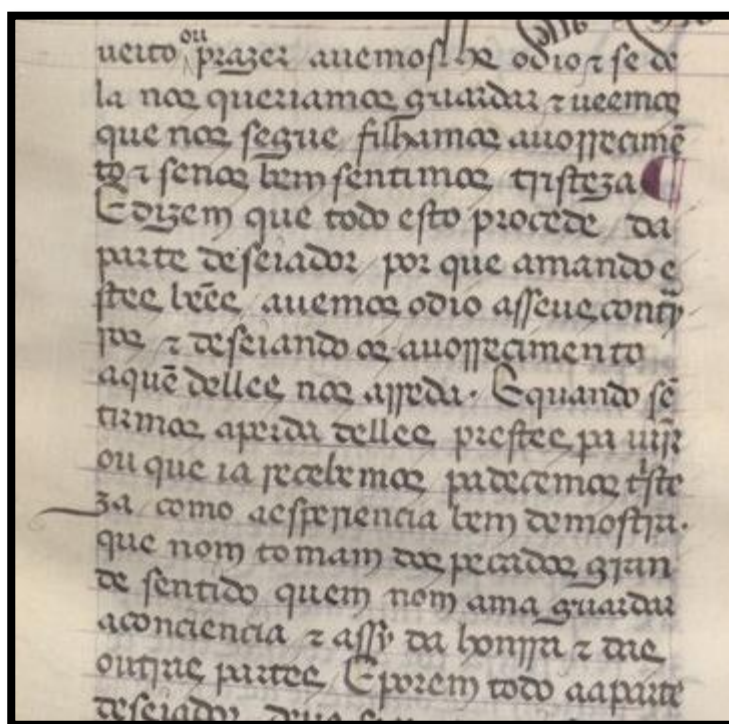 ueito ou prazer auemoslhe odio ⁊ se de
la nos queriamos guardar ⁊ ueemos
que nos segue filhamos auorrecimẽ
to ⁊ senos bem sentimos tristeza ¶
E dizem que todo esto procede da
parte deseiador por que amando e
stes bẽes auemos odio asseus contr̃
ros ⁊ deseiando os auorrecimento
aquẽ delles nos arreda. E quando sẽ
tirmos aperda delles prestes pa uijr
ou que ia recebemos padecemos tʳste
za como aesperiencia bem demostra.
que nom tomam dos pecados gran
de sentido quem nom ama guardar
aconciencia ⁊ assy da honrra ⁊ das
outras partes E porem todo aaparte
deseiador